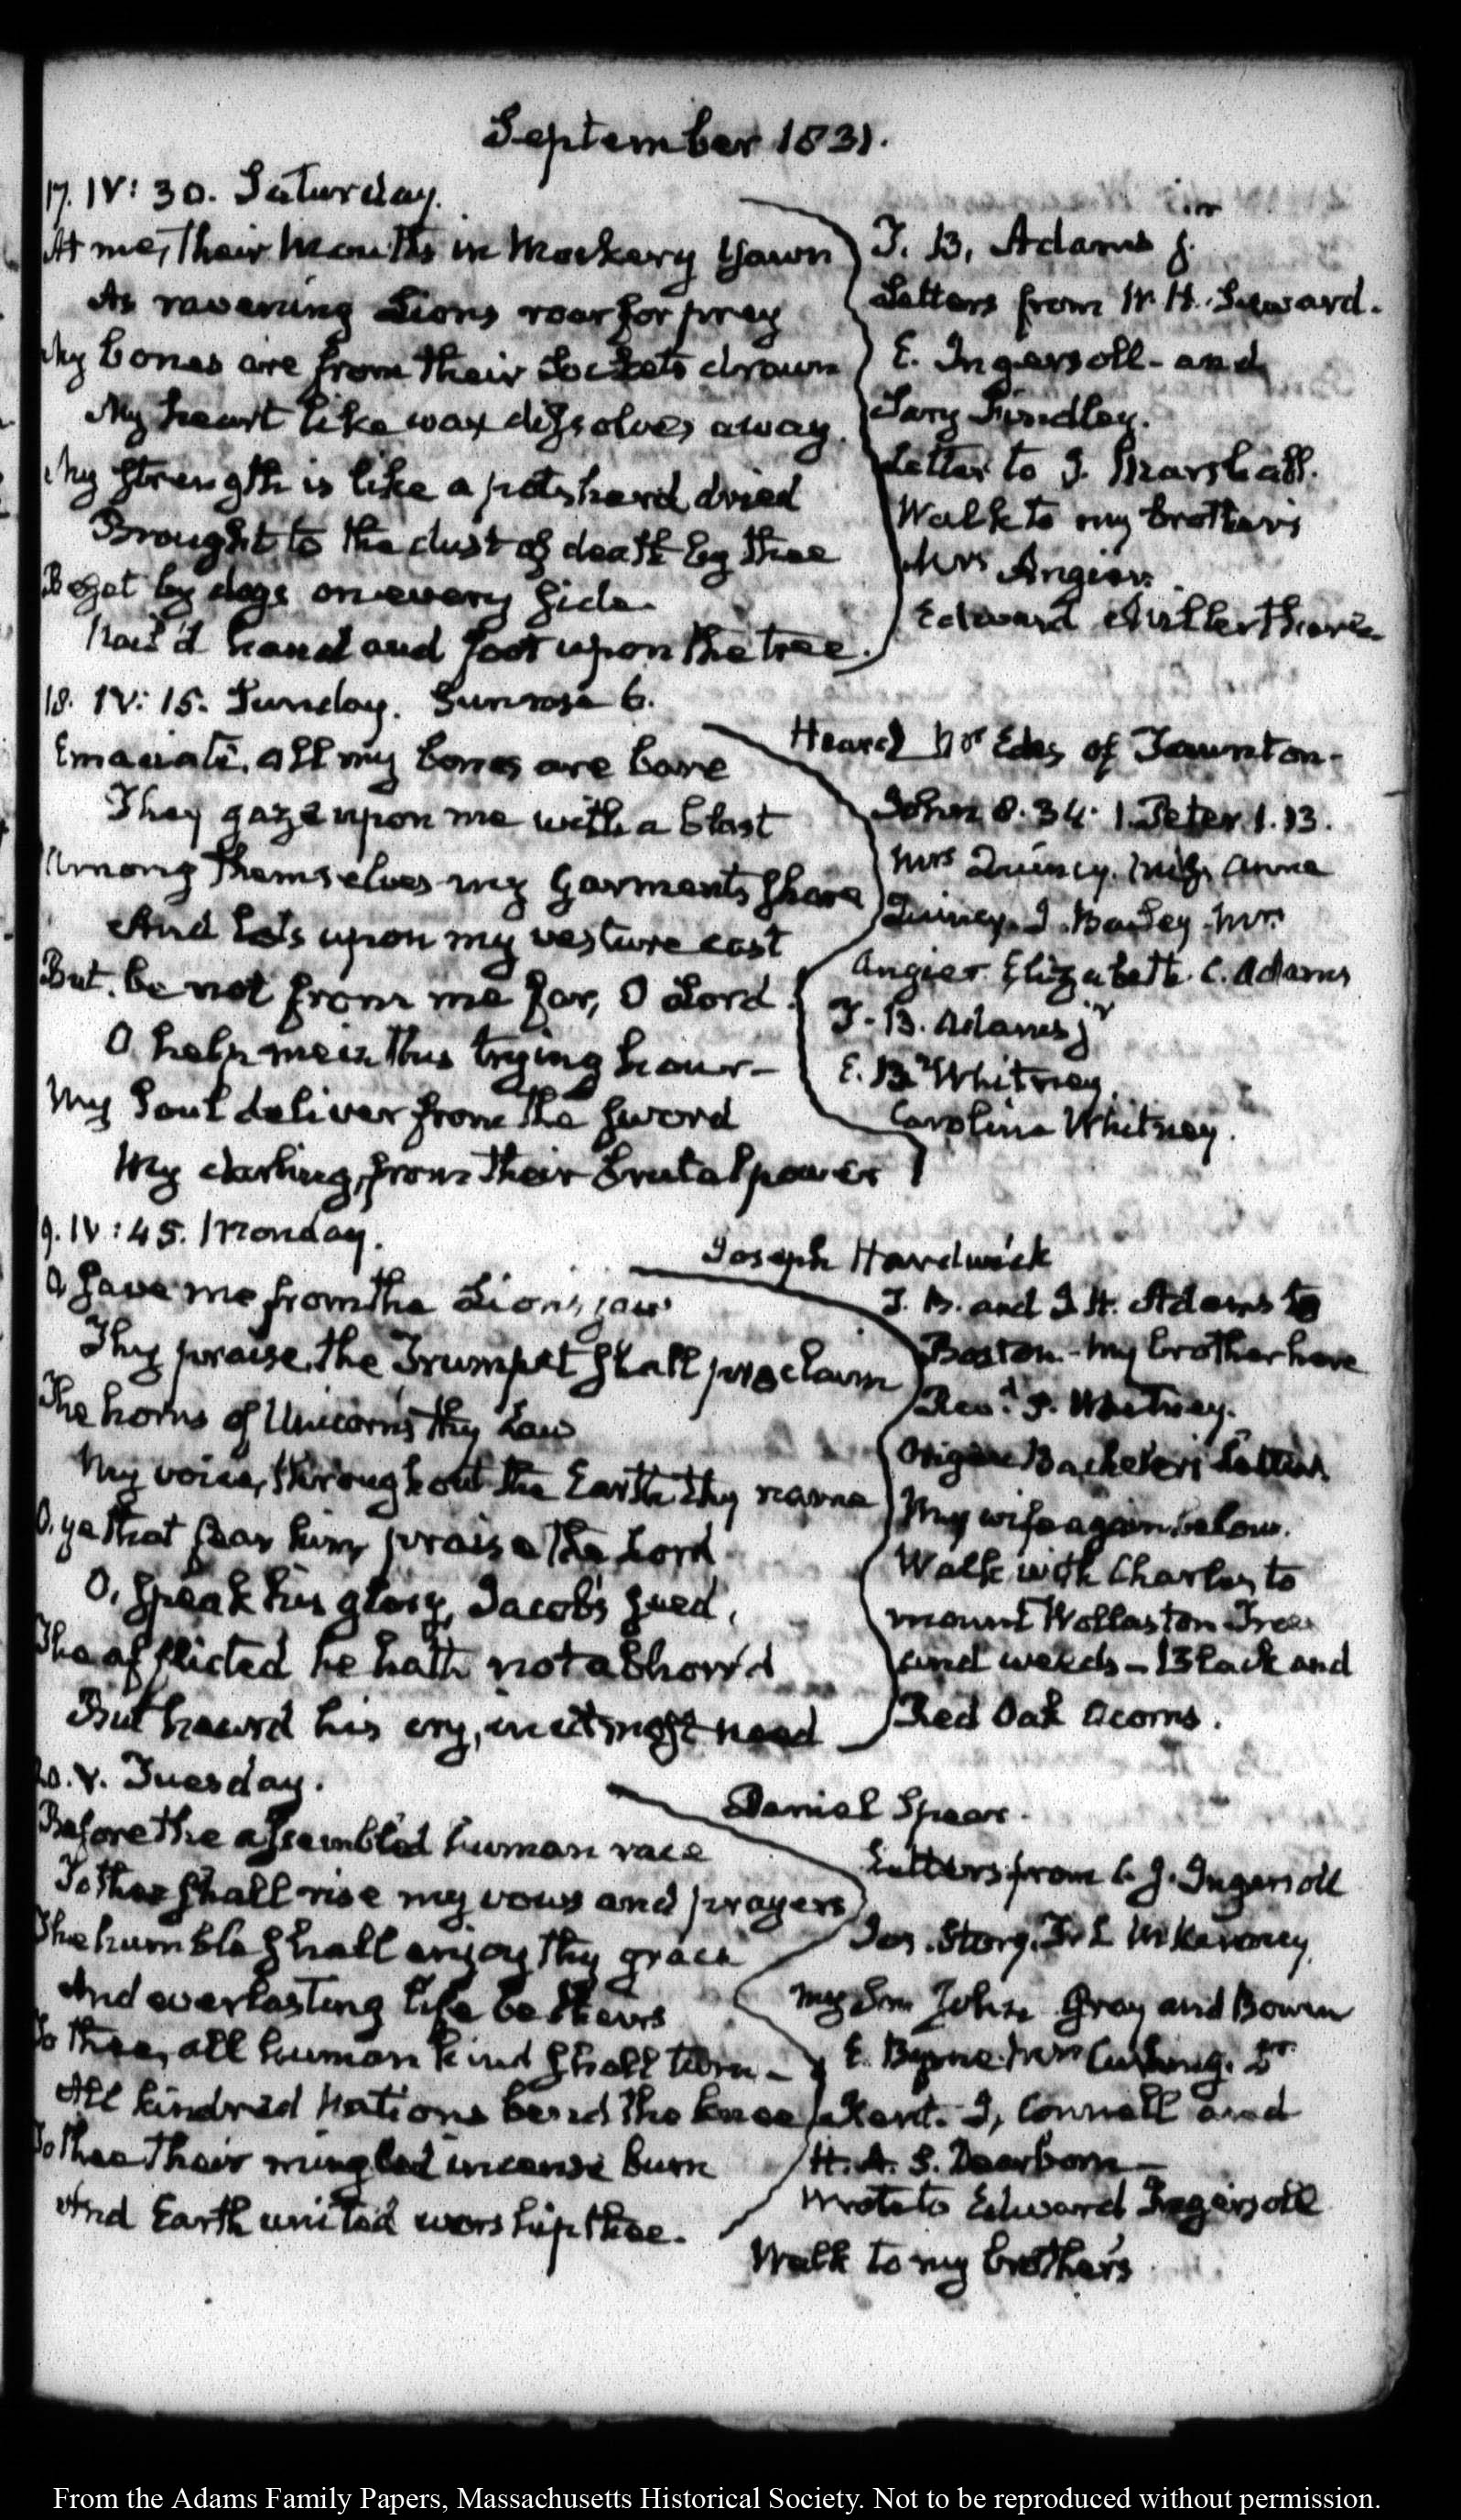 September 1831.
17. IV: 30. Saturday.
At me, their mouths in mockery yawn
As ravening Lions roar for prey
My bones are from their Sockets drawn
My heart like wax dissolves away.
My strength is like a potsherd dried
Brought to the dust of death by thee
Beset by dogs on every side
Nail'd hand and foot upon the tree.
T. B. Adams jr.
Letters from W. H. Seward.
E. Ingersoll - and
Findley.
Letter to J. Marshall.
Walk to my brother's
Mrs Angier.
Edward
18. IV: 15. Sunday. Sun rose 6.
Emaciate, all my bones are bare
They gaze upon me with a blast
Among themselves my garments share
And lots upon my vesture cast
But, be not from me far, O Lord
O help me in this trying hour-
My Soul deliver from the sword
My darling, from their brutal power
Heard Mr Edes of Taunton-
John 8. 34. 1. Peter 1. 13.
Mrs Quincy. Miss Anne
Quincy. J. Bailey. Mrs
Angier. Elizabeth C. Adams
T. B. Adams jr
E. Whitney
Caroline Whitney.
9. IV: 45. Monday.
O, save me from the Lion's jaw
Thy praise, the Trumpet shall proclaim
The horns of Unicorns thy Law
My voice, throughout the Earth thy name
O, ye that fear him, praise the Lord
O, speak his glory, Jacob's seed,
The afflicted he hath not abhorr'd
But heard his cry, in utmost need
Joseph Hardwick
T. B. and J. H. Adams to
Boston - my brother here
Revd. P. Whitney.
Origen Bacheler's Letter
My wife again below.
Walk with Charles to
mount Wollaston Tree
and weeds - Black and
Red Oak acorns.
20. V. Tuesday.
Before the assembled human race
To thee shall rise my vows and prayers
The humble shall enjoy thy grace
And everlasting life be theirs
To thee, all human kind shall turn-
All kindred Nations bend the knee
To thee their mingled incense burn
And Earth united worship thee.
Daniel Spear.
Letters from C. J. Ingersoll
Jos. Story. T. L. McKenney
My Son John Gray and Bowen
E. Byrne. Cushing.
Kent. J, Connell and
H. A. S. Dearborn-
Wrote to Edward Ingersoll
Walk to my brother's
From the Adams Family Papers, Massachusetts Historical Society. Not to be reproduced without permission.